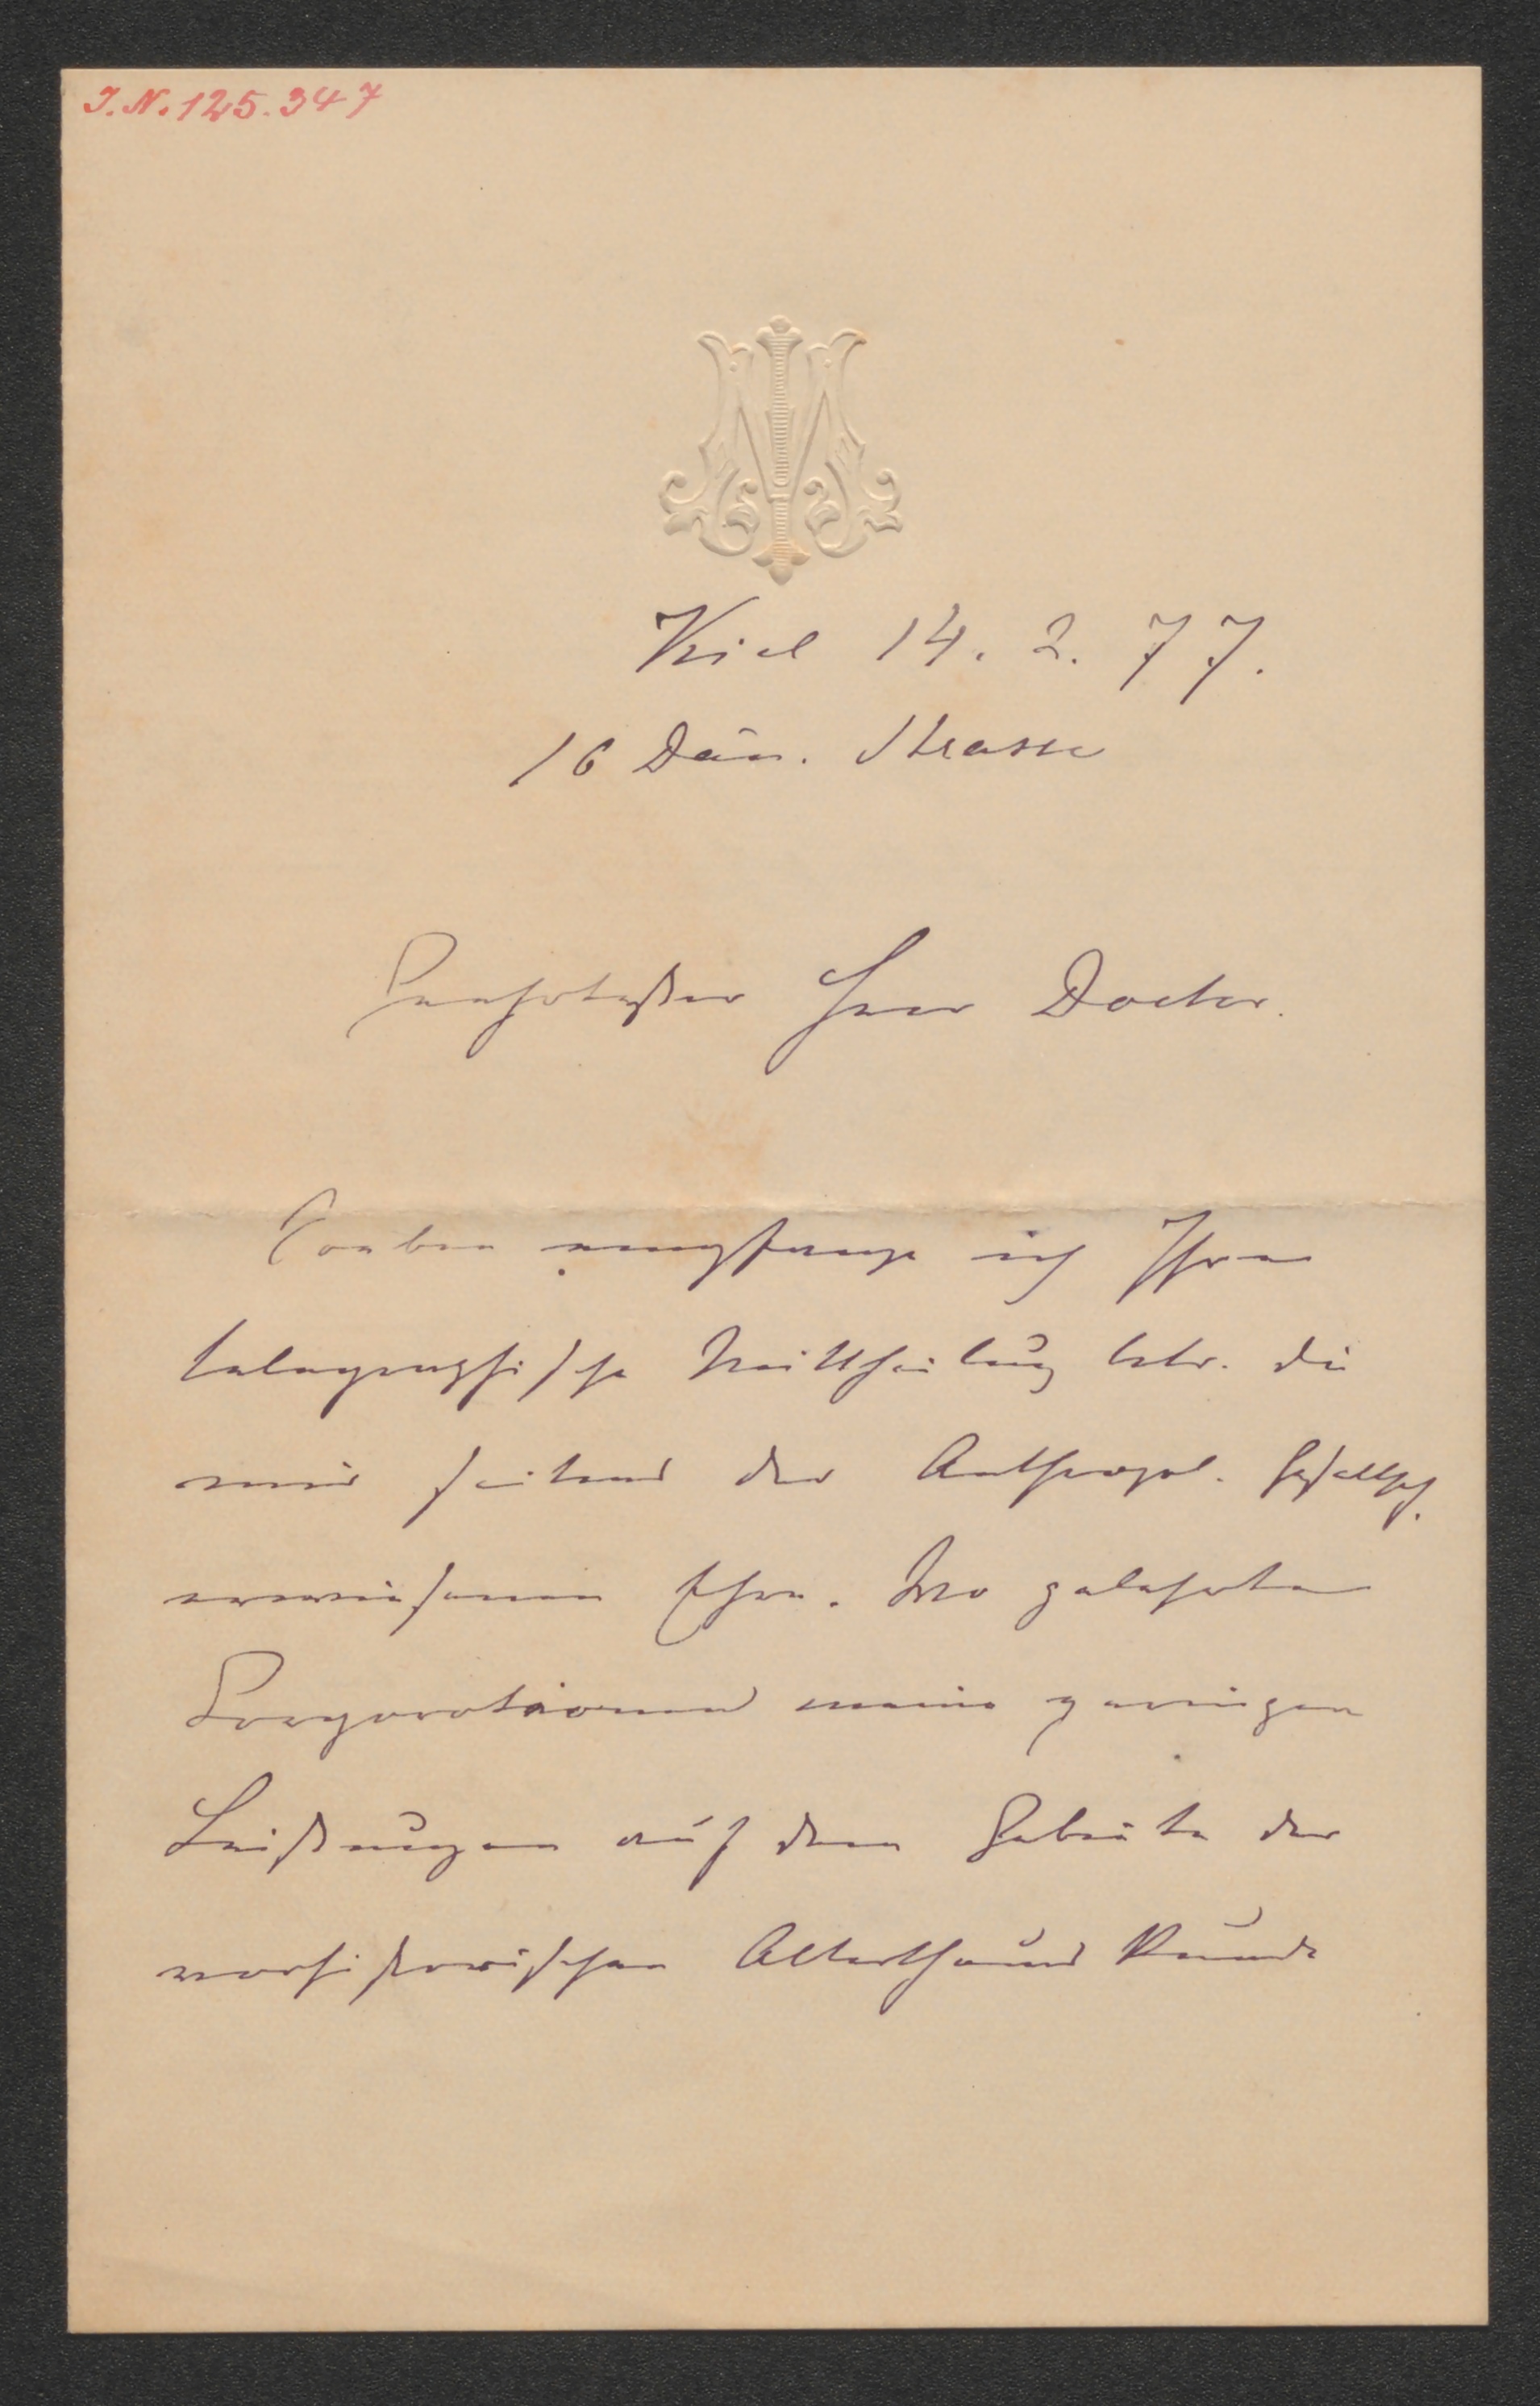 I.N. 125.347
Kiel 14. 2. 77.
16 Dän. Strasse
Geehrtester Herr Doctor.
Soeben empfange ich Ihre
telegraphische Mittheilung betr. die
mir seitens der Anthropol. Gesellsch.
erwiesenen Ehre. Wo gelehrte
Corporationen meine geringen
Leistungen auf dem Gebiete der
vorhistorischen Alterthums Kunde